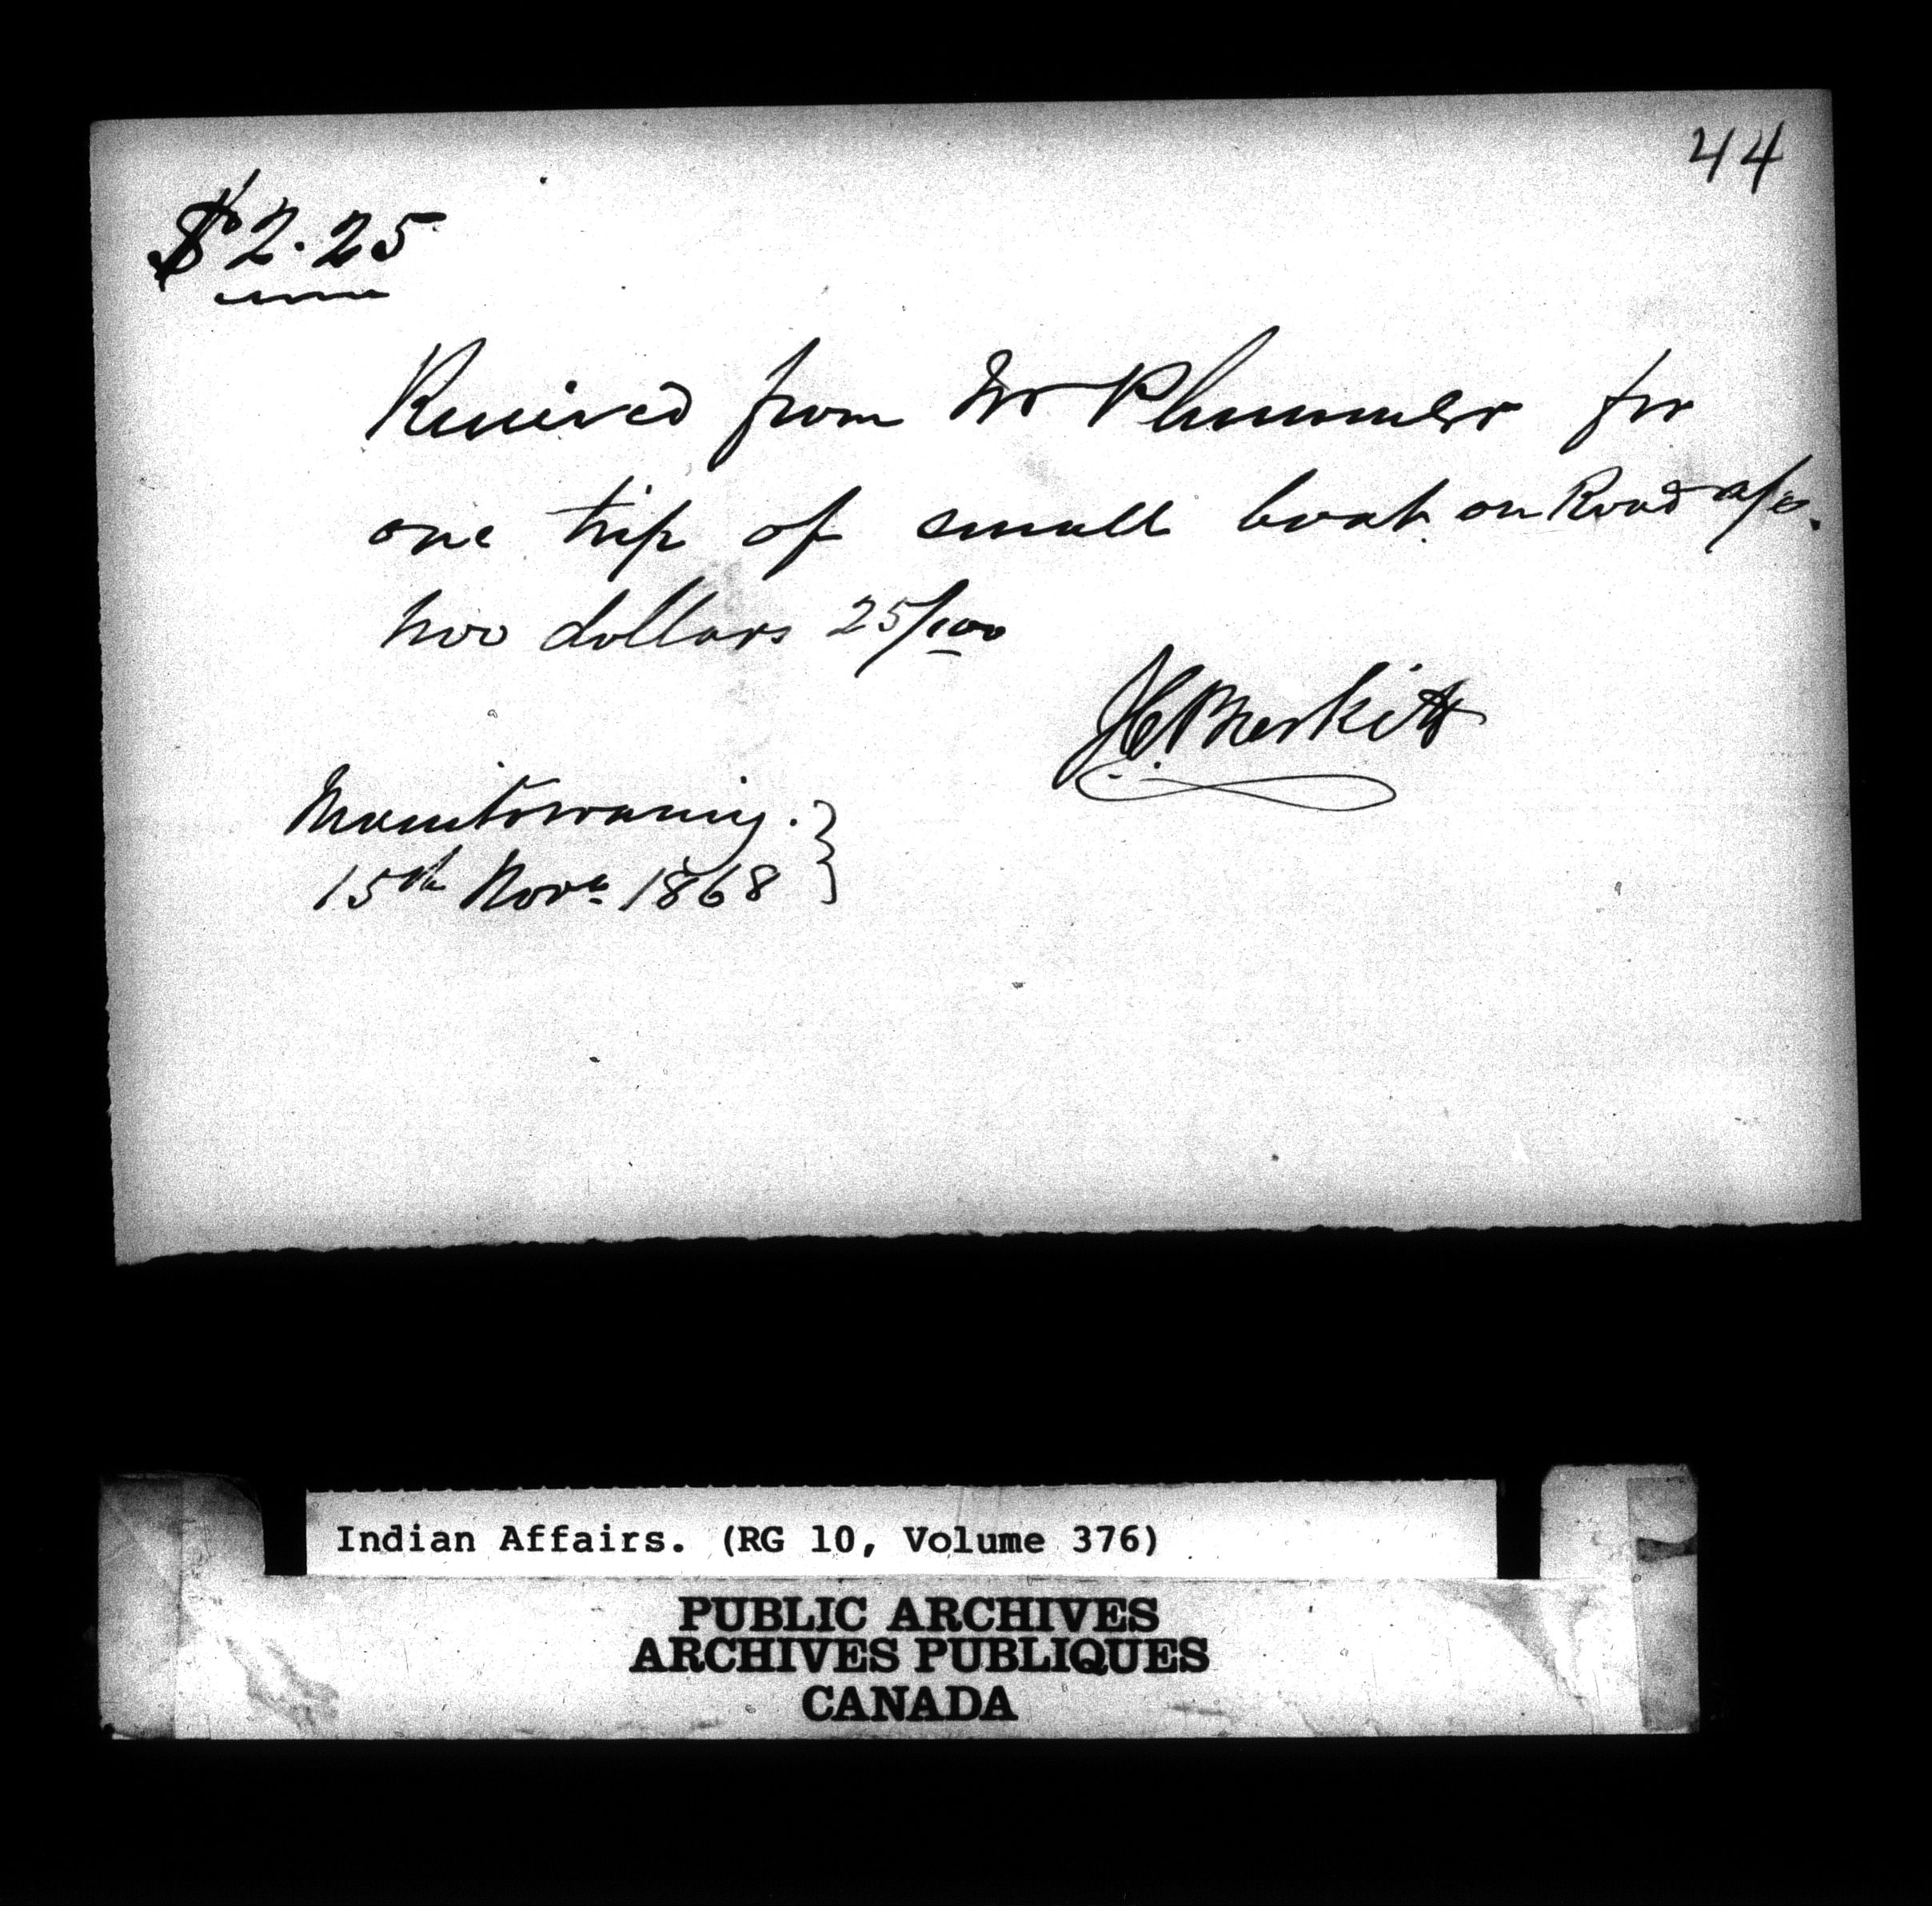 44
$2.25
Received from Mr Plummer for
one trip of small boat on Road a/c.
two dollars 25/100
J.C.
Manitowaning.
15th Novr 1868
Indian Affairs. (RG 10, Volume 376)
PUBLIC ARCHIVES
ARCHIVES PUBLIQUES
CANADA